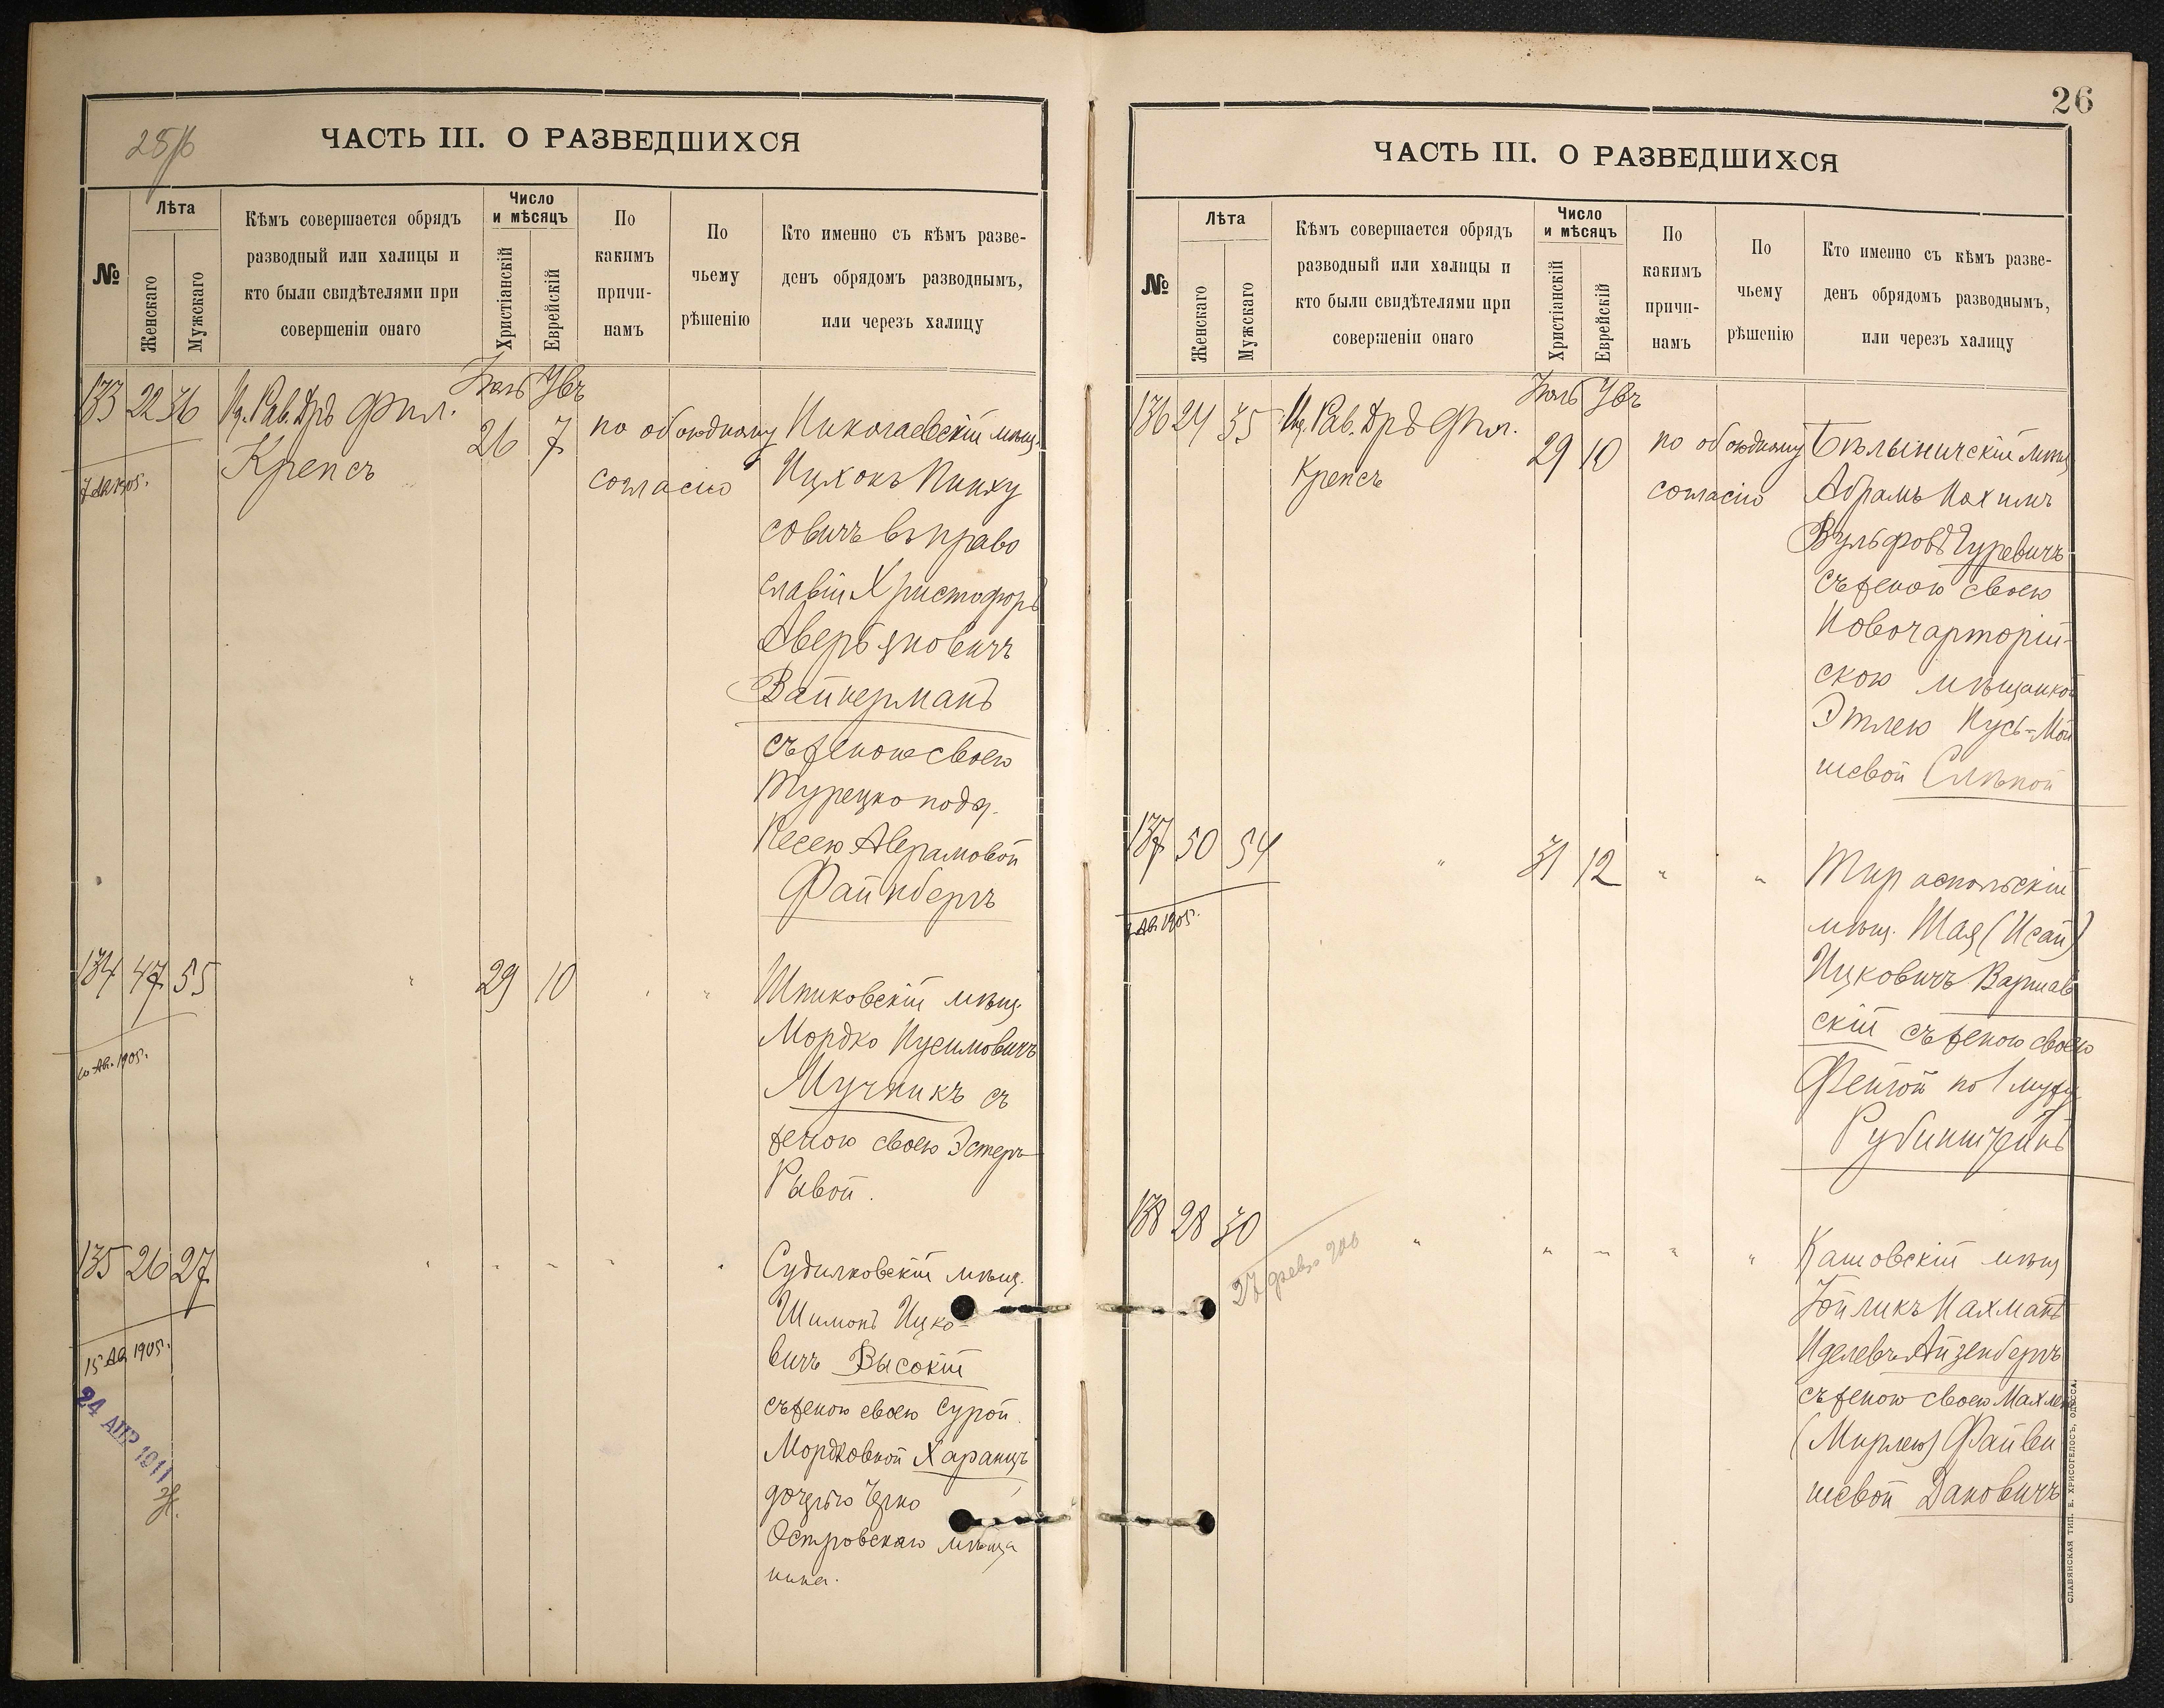 25/б
ЧАСТЬ III. О РАЗВЕДШИХСЯ
№
Лѣта
Женскаго
Мужскаго
Кѣмъ совершается обрядъ
разводный или халицы и
кто были свидѣтелями при
совершеніи онаго
Число
и мѣсяцъ
Христіанскій
Еврейскій
По
какимъ
причи-
намъ
По
чьему
рѣшенію
Кто именно съ кѣмъ разве-
денъ обрядомъ разводнымъ,
или черезъ халицу
133 22 36
Рав. Дръ Фил.
Крепсъ
26 7
по обоюдному
согласію
Николаевскій мѣщ.
Ицхокъ Пинху
совичъ въ право
славіи Христофоръ
Аверьяновичъ
Вайнерманъ
съ женою своею
Турецко подд.
Песею Аврамовой
Файнбергъ
134 47 55
29 10
Шпиковскій мѣщ.
Мордко Нусимовичъ
Мучникъ съ
женою своею Эстеръ
Ривой.
Ав. 1905.
135 26 27
Судилковскій мѣщ.
Шимонъ Ицко-
вичъ Высокій
съ женою своею Сурой
Мордковной Харанцъ
дочерью
Островскаго мѣща
нина.
15 Ав 1905.
24 АПР 1911
26
ЧАСТЬ III. О РАЗВЕДШИХСЯ
№
Лѣта
Женскаго
Мужскаго
Кѣмъ совершается обрядъ
разводный или халицы и
кто были свидѣтелями при
совершеніи онаго
Число
и мѣсяцъ
Христіанскій
Еврейскій
По
какимъ
причи-
намъ
По
чьему
рѣшенію
Кто именно съ кѣмъ разве-
денъ обрядомъ разводнымъ,
или черезъ халицу
136 24 35
Рав. Дръ Фил.
Крепсъ
29 10
по обоюдному
согласію
Бѣлыничскій мѣщ
Абрамъ Нахимъ
Вульфовъ Гуревичъ
съ женою своею
Новочарторій-
скою мѣщанкой
Этлею Нусь-Мой
шевой Слѣпой
137 50 54
31 12
Тираспольскій
мѣщ. Шая (Исай)
Ицковичъ Варшав
скій съ женою своею
Фейгой по 1 мужу
Рубинштейнъ
Ав. 1905.
138 28 30
27 февр. 906
Кашовскій мѣщ
Іойликъ Нахманъ
Иделевъ Айзенбергъ
съ женою своею
(Мирлею) Файви
шевой Дановичъ
СЛАВЯНСКАЯ ТИП. Е. ХРИСОГЕЛОСЪ, ОДЕССА.